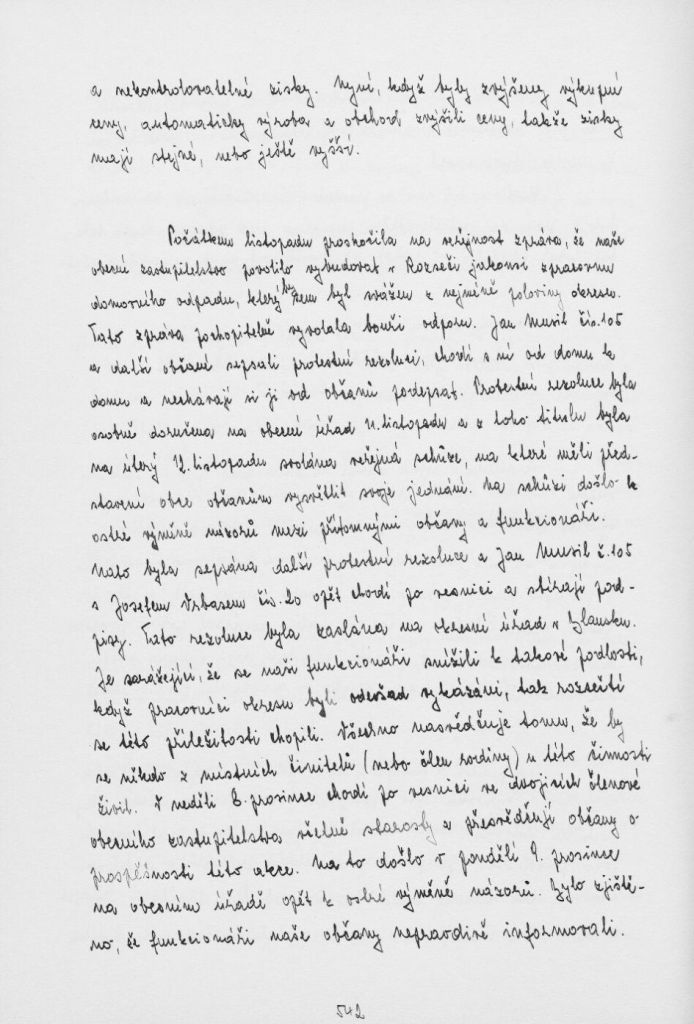 a nekontrolovatelné zisky. Nyní, když byly zvýšeny výkupné
ceny, automaticky výroba a obchod zvýšili ceny, takže zisky
mají stejné, nebo ještě vyšší.
Počátkem listopadu proskočila na veřejnost zpráva, že naše
obecní zastupitelstvo povolilo vybudovat v Rozseči jakousi zpracovnu
domovního odpadu, který by sem byl svážen z nejméně poloviny okresu.
Tato zpráva pochopitelně vyvolala bouři odporu. Jan Musil čís. 105
a další občané sepsali protestní rezoluci, chodí s ní od domu k
domu a nechávají si ji od občanů podepsat. Protestní rezoluce byla
osobně doručena na obecní úřad 11. listopadu a z toho titulu byla
na úterý 12. listopadu svolána veřejná schůze, na které měli před-
stavení obce občanům vysvětlit svoje jednání. Na schůzi došlo k
ostré výměně názorů mezi přítomnými občany a funkcionáři.
Nato byla sepsána další protestní rezoluce a Jan Musil č. 105
s Josefem Vrbasem čís. 20 opět chodí po vesnici a sbírají pod-
pisy. Tato rezoluce byla zaslána na okresní úřad v Blansku.
Je zarážející, že se naši funkcionáři snížili k takové podlosti,
když pracovníci okresu byli odevšad vykázáni, tak rozsečtí
se této příležitosti chopili. Všechno nasvědčuje tomu, že by
se někdo z místních činitelů (nebo člen rodiny) u této činnosti
živil. V neděli 8. prosince chodí po vesnici ve dvojicích členové
obecního zastupitelstva včetně starosty a přesvědčují občany o
prospěšnosti této akce. Na to došlo v pondělí 9. prosince
na obecním úřadě opět k ostré výměně názorů. Bylo zjiště-
no, že funkcionáři naše občany nepravdivě informovali.
542